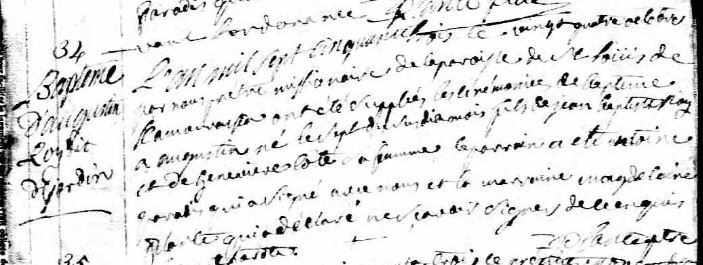 paradis
vant l'ordonance
34
Bapteme
D'augustin
Roy dit
Dejardin
L'an mil sept cinquante trois le vingt quatre octobre
par nous pretre missionaire de la paroisse de St louis de
Kamouraska ont eté supplées les cérémonies de bapteme
a augustin né le sept du susdit mois fils de jean baptiste Roy
et de genevieve coté sa famme le parrain a eté antoine
paradis qui a signé avec nous et la marraine magdelaine
plante qui a déclaré ne scavoir signer de ce enquis
35
trois le